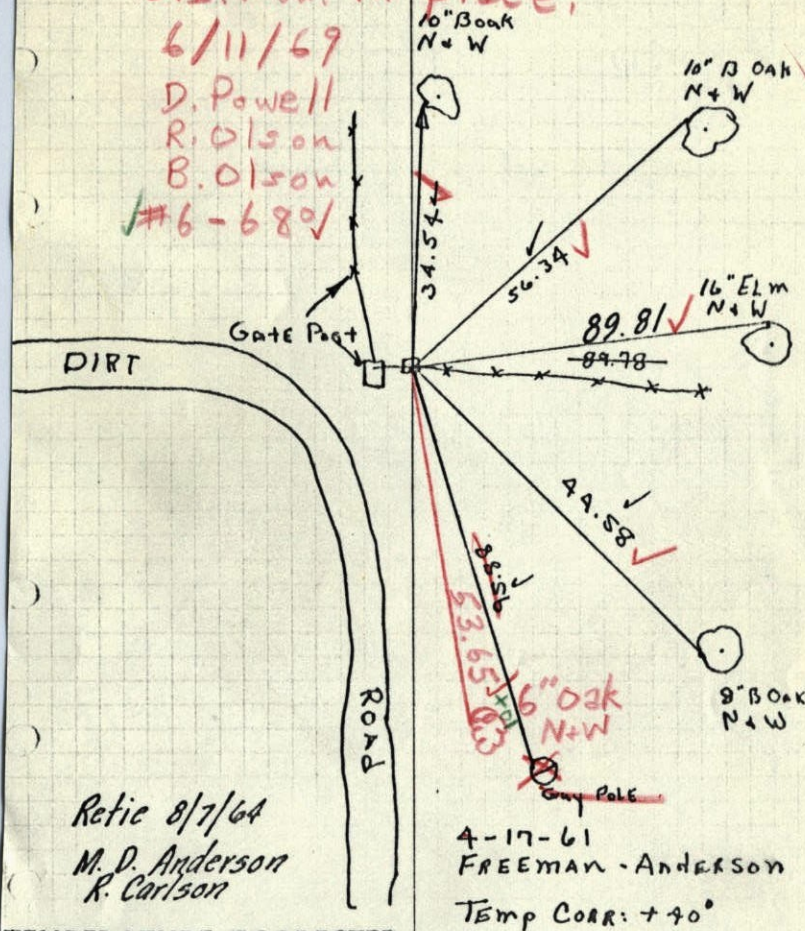 6/11/69
D. Powell
R. Olson
B. Olson
✓#6-68°✓
10" B oak
N & W
10" B OAK
N & W
34.54
56.34
16" ELM
N & W
89.81
89.78
GATE POST
DIRT
44.58
88.56
63.65
+01
6" Oak
N+W
8" B OAK
N & W
ROAD
Guy POLE
Retie 8/7/64
M. D. Anderson
R. Carlson
4-17-61
FREEMAN - ANDERSON
TEMP CORR: +40°